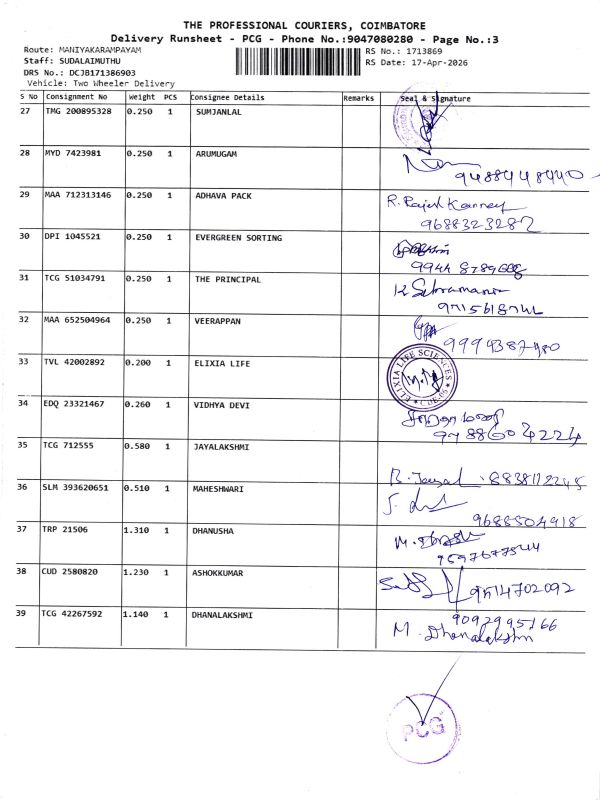 THE PROFESSIONAL COURIERS, COIMBATORE
Delivery Runsheet - PCG - Phone No.:9047080280 - Page No.:3
Route: MANIYAKARAMPAYAM
RS No.: 1713869
Staff: SUDALAIMUTHU
RS Date: 17-Apr-2026
DRS No.: DCJB171386903
Vehicle: Two Wheeler Delivery
S No Consignment No Weight PCS Consignee Details Remarks Seal & Signature
27 TMG 200895328 0.250 1 SUMJANLAL
28 MYD 7423981 0.250 1 ARUMUGAM
9488448440
29 MAA 712313146 0.250 1 ADHAVA PACK R. Rajesh Kannan
9688323287
30 DPI 1045521 0.250 1 EVERGREEN SORTING
31 TCG 51034791 0.250 1 THE PRINCIPAL
32 MAA 652504964 0.250 1 VEERAPPAN
33 TVL 42002892 0.200 1 ELIXIA LIFE ELIXIA LIFE SCIENCES
34 EDQ 23321467 0.260 1 VIDHYA DEVI
35 TCG 712555 0.580 1 JAYALAKSHMI
36 SLM 393620651 0.510 1 MAHESHWARI
9688504918
37 TRP 21506 1.310 1 DHANUSHA
38 CUD 2580820 1.230 1 ASHOKKUMAR 9514702092
39 TCG 42267592 1.140 1 DHANALAKSHMI 9092995166
M. Dhanalakshmi
PCG